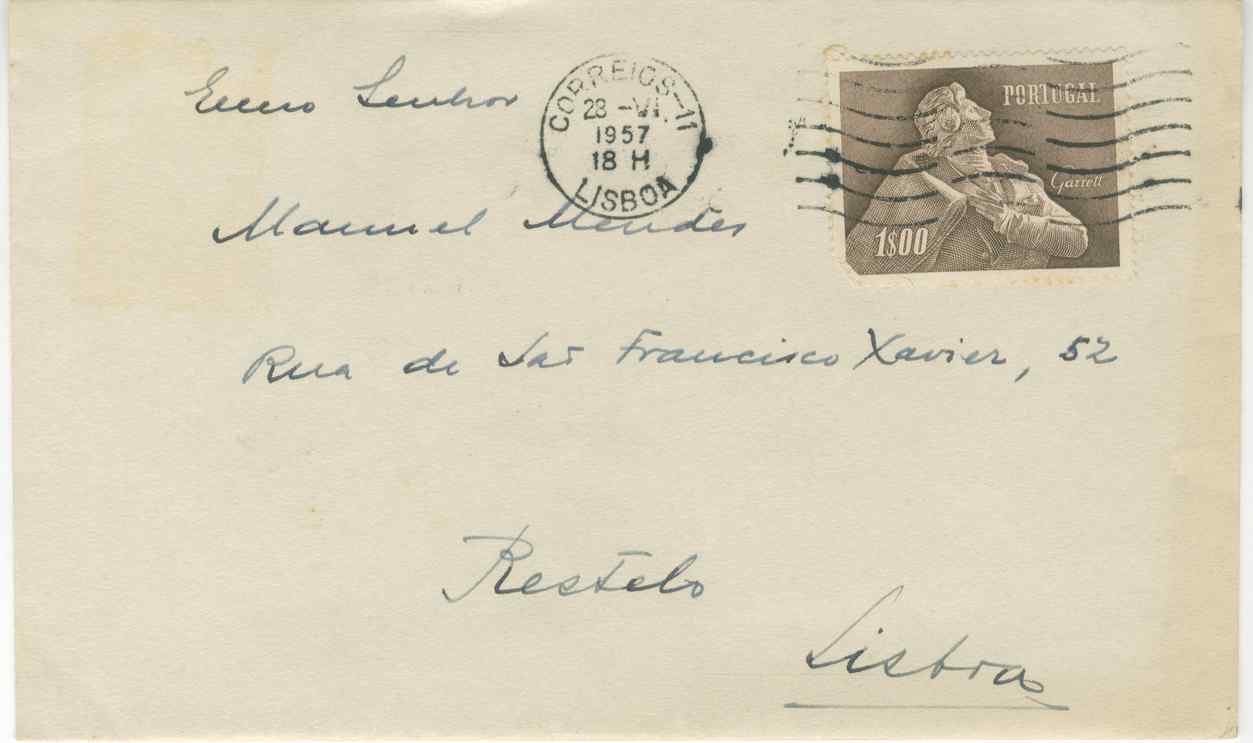 Exmo Senhor
CORREIOS-11
28 -VI.
1957
18 H
LISBOA
PORTUGAL
Garrett
1$00
Manuel Mendes
Rua de São Francisco Xavier, 52
Restelo
Lisboa